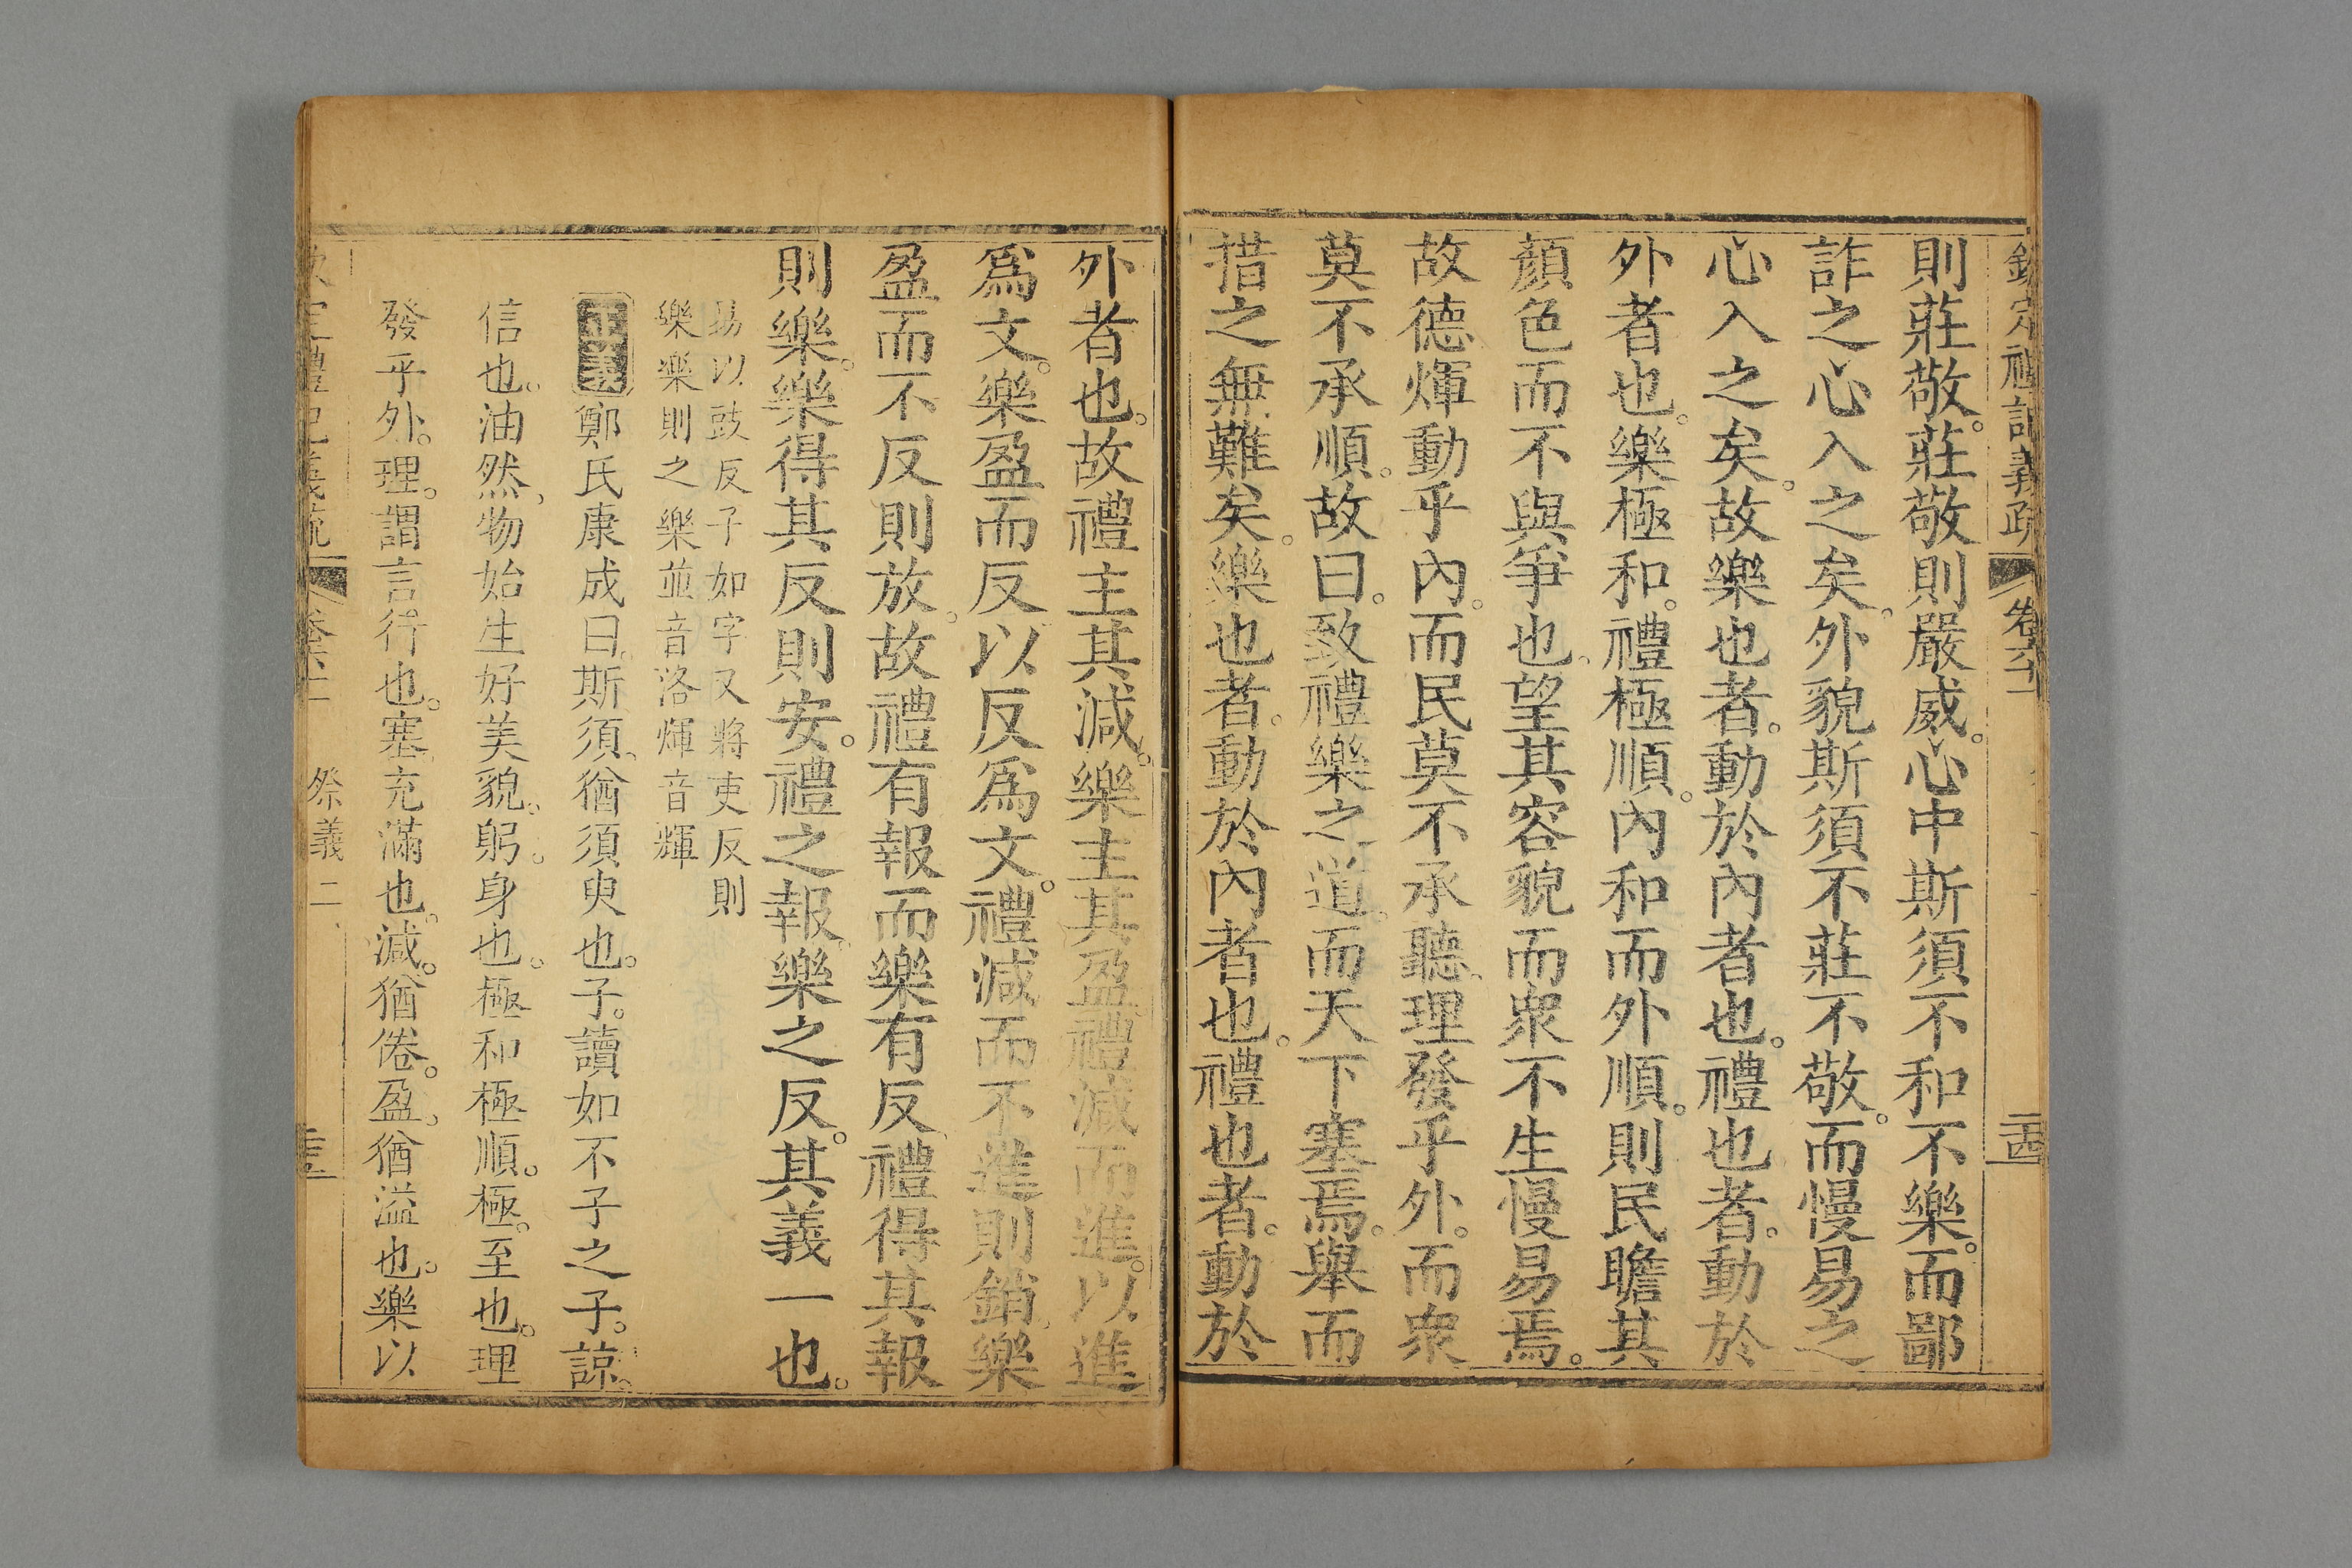 欽定禮記義疏 卷六十一 二十四
則莊敬。莊敬則嚴威。心中斯須不和不樂。而鄙
詐之心入之矣。外貌斯須不莊不敬。而慢易之
心入之矣。故樂也者。動於內者也。禮也者。動於
外者也。樂極和。禮極順。內和而外順。則民瞻其
顏色而不與爭也。望其容貌而眾不生慢易焉。
故德煇動乎內。而民莫不承聽。理發乎外。而眾
莫不承順。故曰。致禮樂之道。而天下塞焉。舉而
措之無難矣。樂也者。動於內者也。禮也者。動於
外者也。故禮主其減。樂主其盈。禮減而進。以進
爲文。樂盈而反。以反爲文。禮減而不進則銷。樂
盈而不反則放。故禮有報而樂有反。禮得其報
則樂。樂得其反則安。禮之報。樂之反。其義一也。
易以豉反子如字又將吏反則
樂樂則之樂並音洛煇音輝
正義 鄭氏康成曰。斯須。猶須臾也。子。讀如不子之子。諒。
信也。油然。物始生好美貌。躬。身也。極和極順。極。至也。理
發乎外。理。謂言行也。塞。充滿也。減。猶倦。盈。猶溢也。樂以
禮記義疏 祭義二